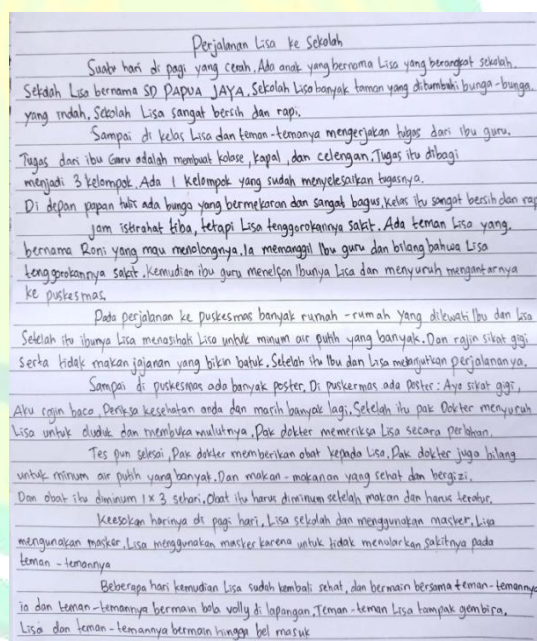 Perjalanan Lisa ke Sekolah
Suatu hari di pagi yang cerah. Ada anak yang bernama Lisa yang berangkat sekolah.
Sekolah Lisa bernama SD PAPUA JAYA. Sekolah Lisa banyak taman yang ditumbuhi bunga-bunga.
yang indah, Sekolah Lisa sangat bersih dan rapi.
Sampai di kelas Lisa dan teman-temanya mengerjakan tugas dari ibu guru.
Tugas dari ibu Guru adalah membuat kolase, kapal, dan celengan. Tugas itu dibagi
menjadi 3 kelompok. Ada 1 kelompok yang sudah menyelesaikan tugasnya.
Di depan papan tulis ada bunga yang bermekaran dan sangat bagus, kelas itu sangat bersih dan rap
jam istirahat tiba, tetapi Lisa tenggorokannya sakit. Ada teman Lisa yang.
bernama Roni yang mau menolongnya. Ia memanggil Ibu guru dan bilang bahwa Lisa
tenggorokannya sakit. Kemudian ibu guru menelfon Ibunya Lisa dan menyuruh mengantarnya
ke puskesmas.
Pada perjalanan ke puskesmas banyak rumah-rumah yang dilewati Ibu dan Lisa
Setelah itu ibunya Lisa menasihati Lisa untuk minum air putih yang banyak. Dan rajin sikat gigi
serta tidak makan jajanan yang bikin batuk. Setelah itu Ibu dan Lisa melanjutkan perjalananya.
Sampai di puskesmas ada banyak poster. Di puskermas ada Poster: Ayo sikat gigi,
Aku rajin baca, Periksa kesehatan anda dan masih banyak lagi. Setelah itu pak Dokter menyuruh
Lisa untuk duduk dan membuka mulutnya. Pak dokter memeriksa Lisa secara perlahan.
Tes pun selesai, Pak dokter memberikan obat kepada Lisa. Pak dokter juga bilang
untuk minum air putih yang banyak. Dan makan-makanan yang sehat dan bergizi.
Dan obat itu diminum 1 x 3 sehari. Obat itu harus diminum setelah makan dan harus teratur.
Keesokan harinya di pagi hari, Lisa sekolah dan menggunakan masker. Lisa
mengunakan masker. Lisa menggunakan masker karena untuk tidak menularkan sakitnya pada
teman-temannya
Beberapa hari kemudian Lisa sudah kembali sehat, dan bermain bersama teman-temannya
ia dan teman-temannya bermain bola volly di lapangan. Teman-teman Lisa tampak gembira.
Lisa dan teman-temannya bermain hingga bel masuk